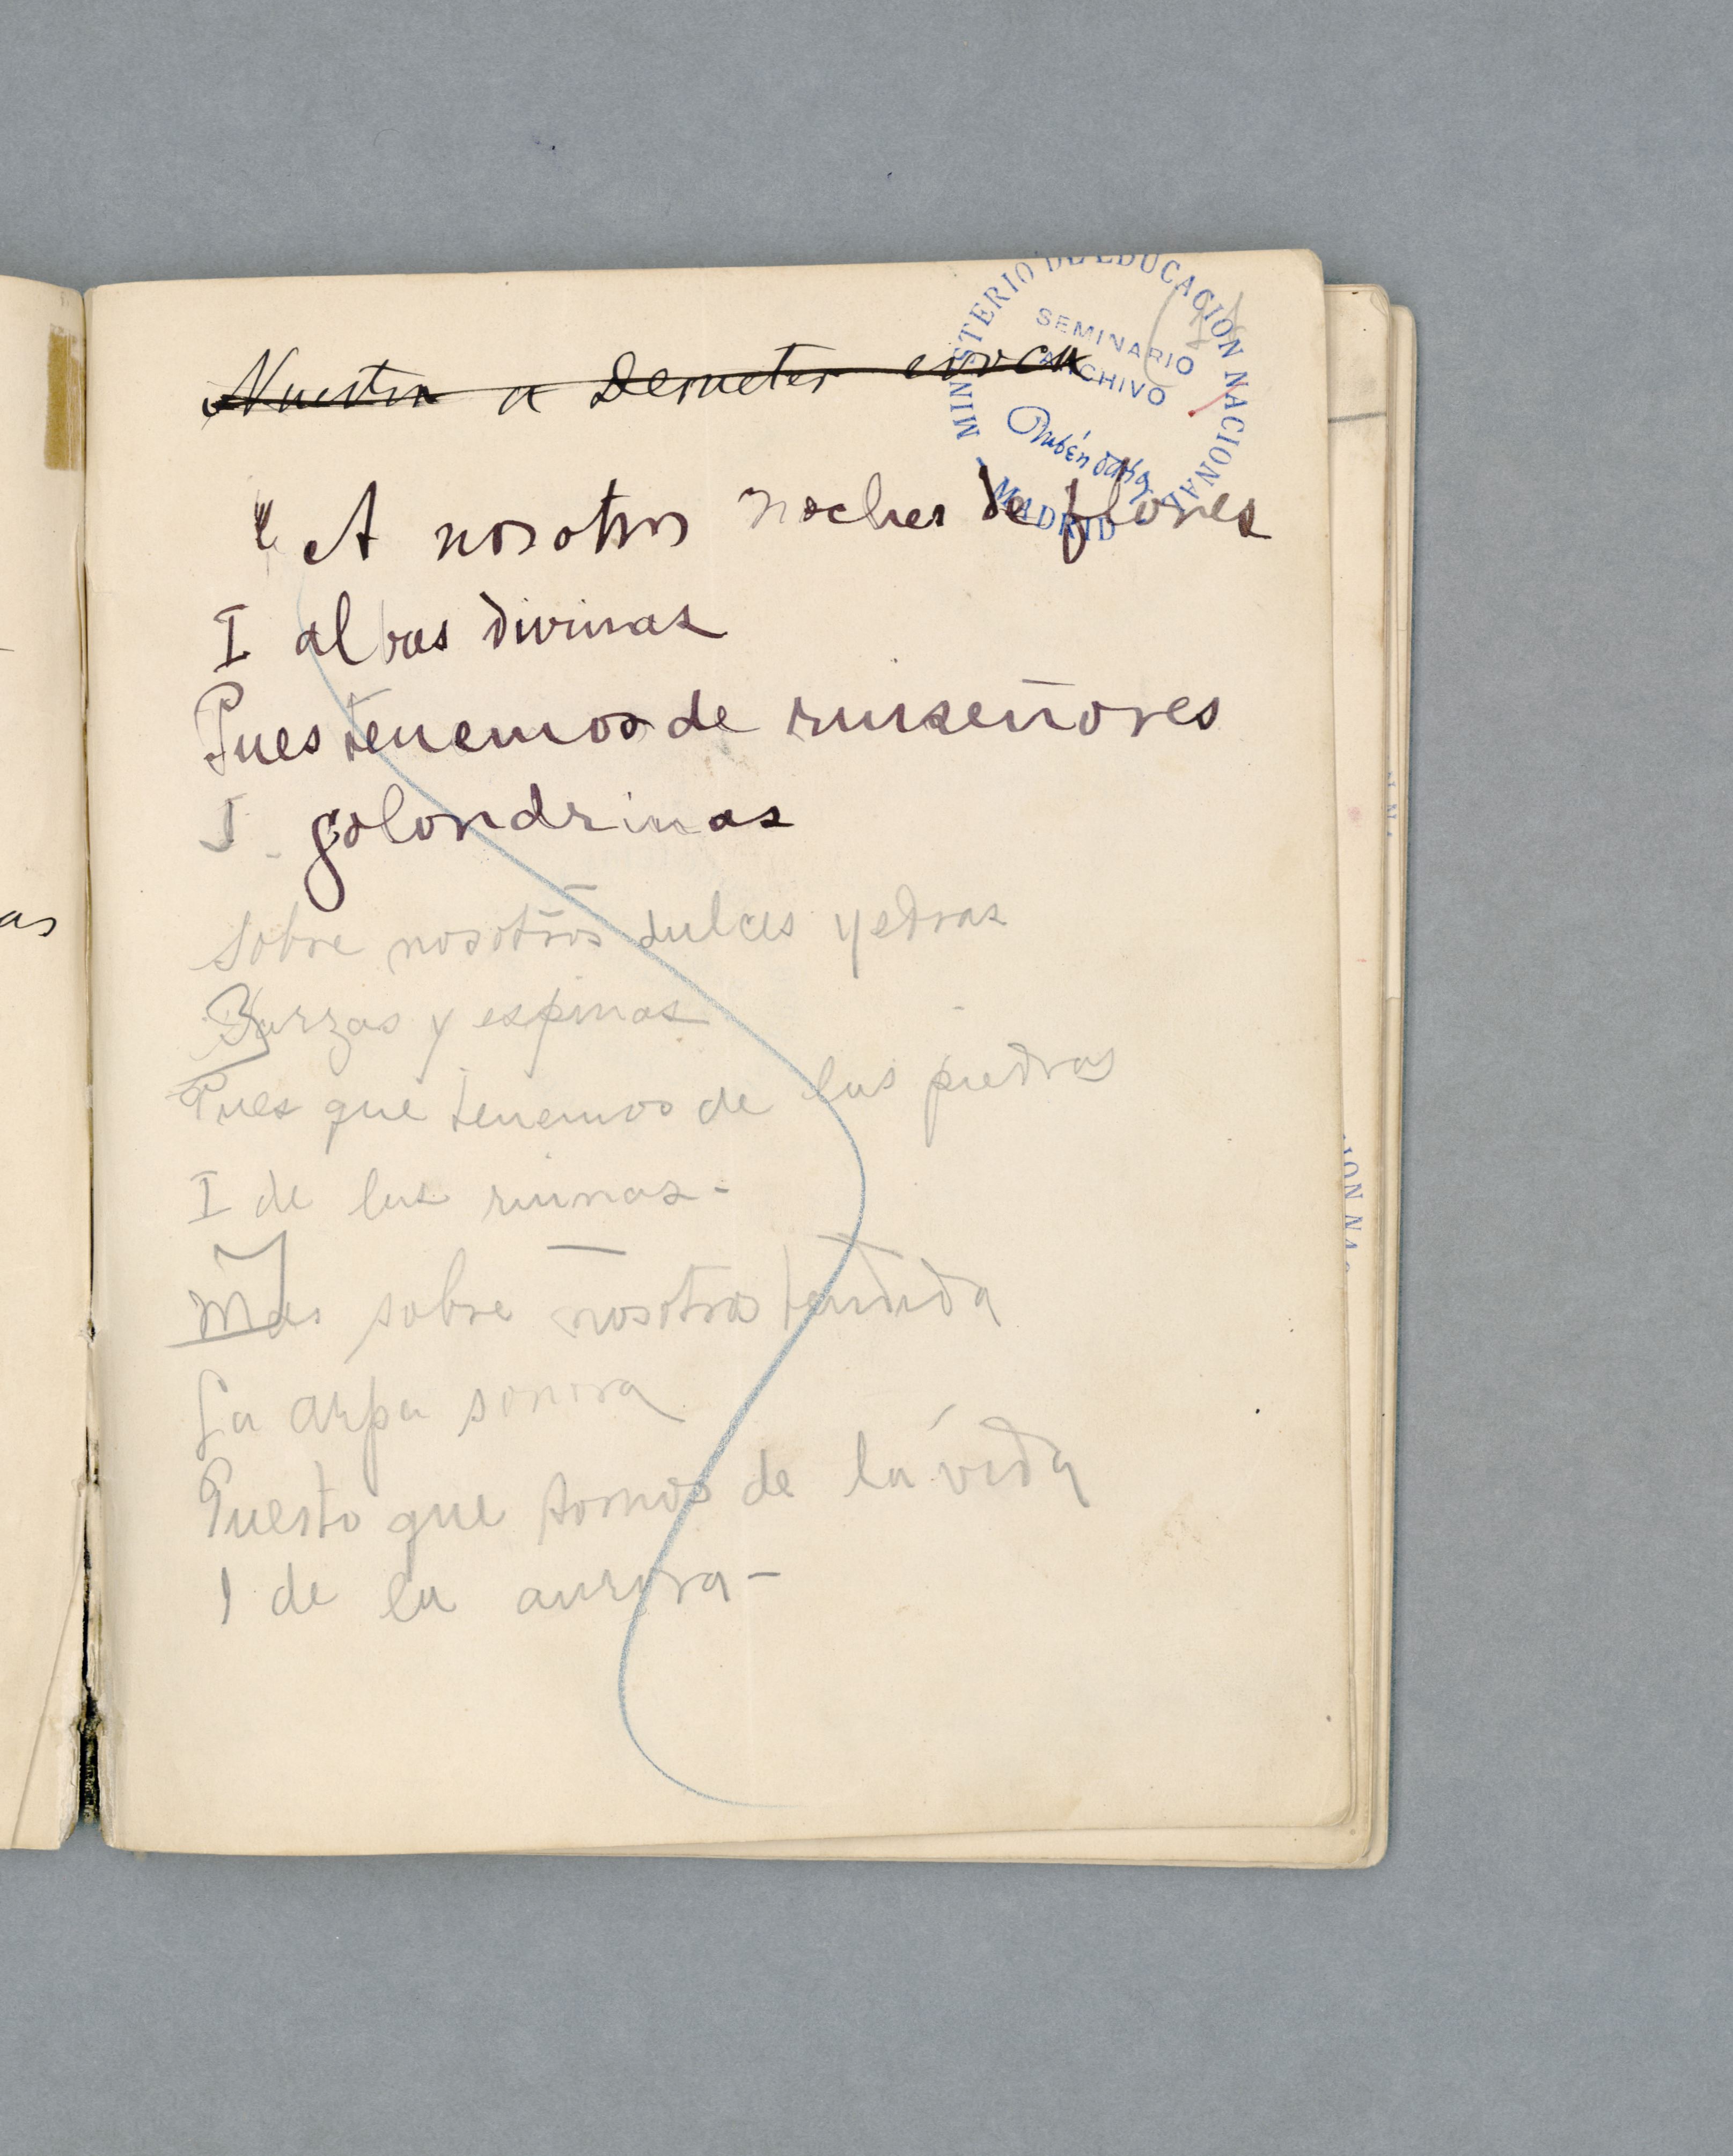 MINISTERIO DE EDUCACION NACIONAL
SEMINARIO
ARCHIVO
Rubén Darío
MADRID
a Demeter evoca
"A nosotros noches de flores
I albas divinas
Pues tenemos de ruiseñores
I golondrinas
Sobre nosotros dulces yedras
Zarzas y espinas
Pues que tenemos de las piedras
I de las ruinas-
Mas sobre nosotros tendida
La arpa sonora
Puesto que somos de la vida
I de la aurora-
as
ION NA